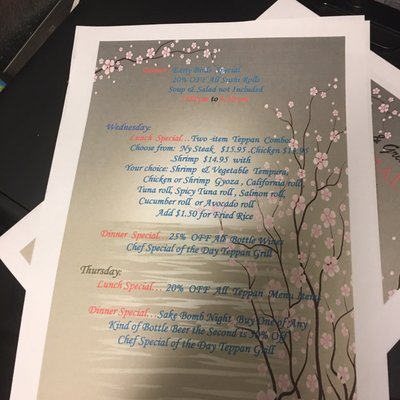 Early Birds Special
20% OFF All Sushi Rolls
Soup & Salad not Included
to
Wednesday:
Lunch Special...Two -item Teppan Combo
Choose from: Ny Steak, $15.95 .Chicken
Shrimp $14.95 with
Your choice: Shrimp & Vegetable Tempura,
Chicken or Shrimp Gyoza , California roll,
Tuna roll, Spicy Tuna roll , Salmon roll,
Cucumber roll or Avocado roll
Add $1.50 for Fried Rice
Dinner Special...25% OFF All Bottle Wines
Chef Special of the Day Teppan Grill
Thursday:
Lunch Special... 20% OFF All Teppan Menu Items
Dinner Special...Sake Bomb Night Buy One of Any
Kind of Bottle Beer the Second is 50% Off
Chef Special of the Day Teppan Grill